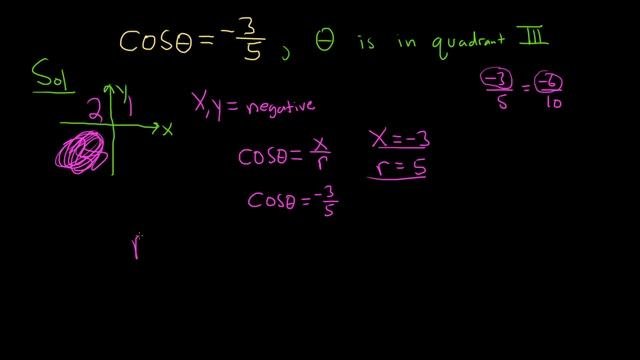 cosθ = -3/5, θ is in quadrant III
Sol
y
2 1
x
x, y = negative
-3/5 = -6/10
cosθ = x/r
x = -3
r = 5
cosθ = -3/5
r